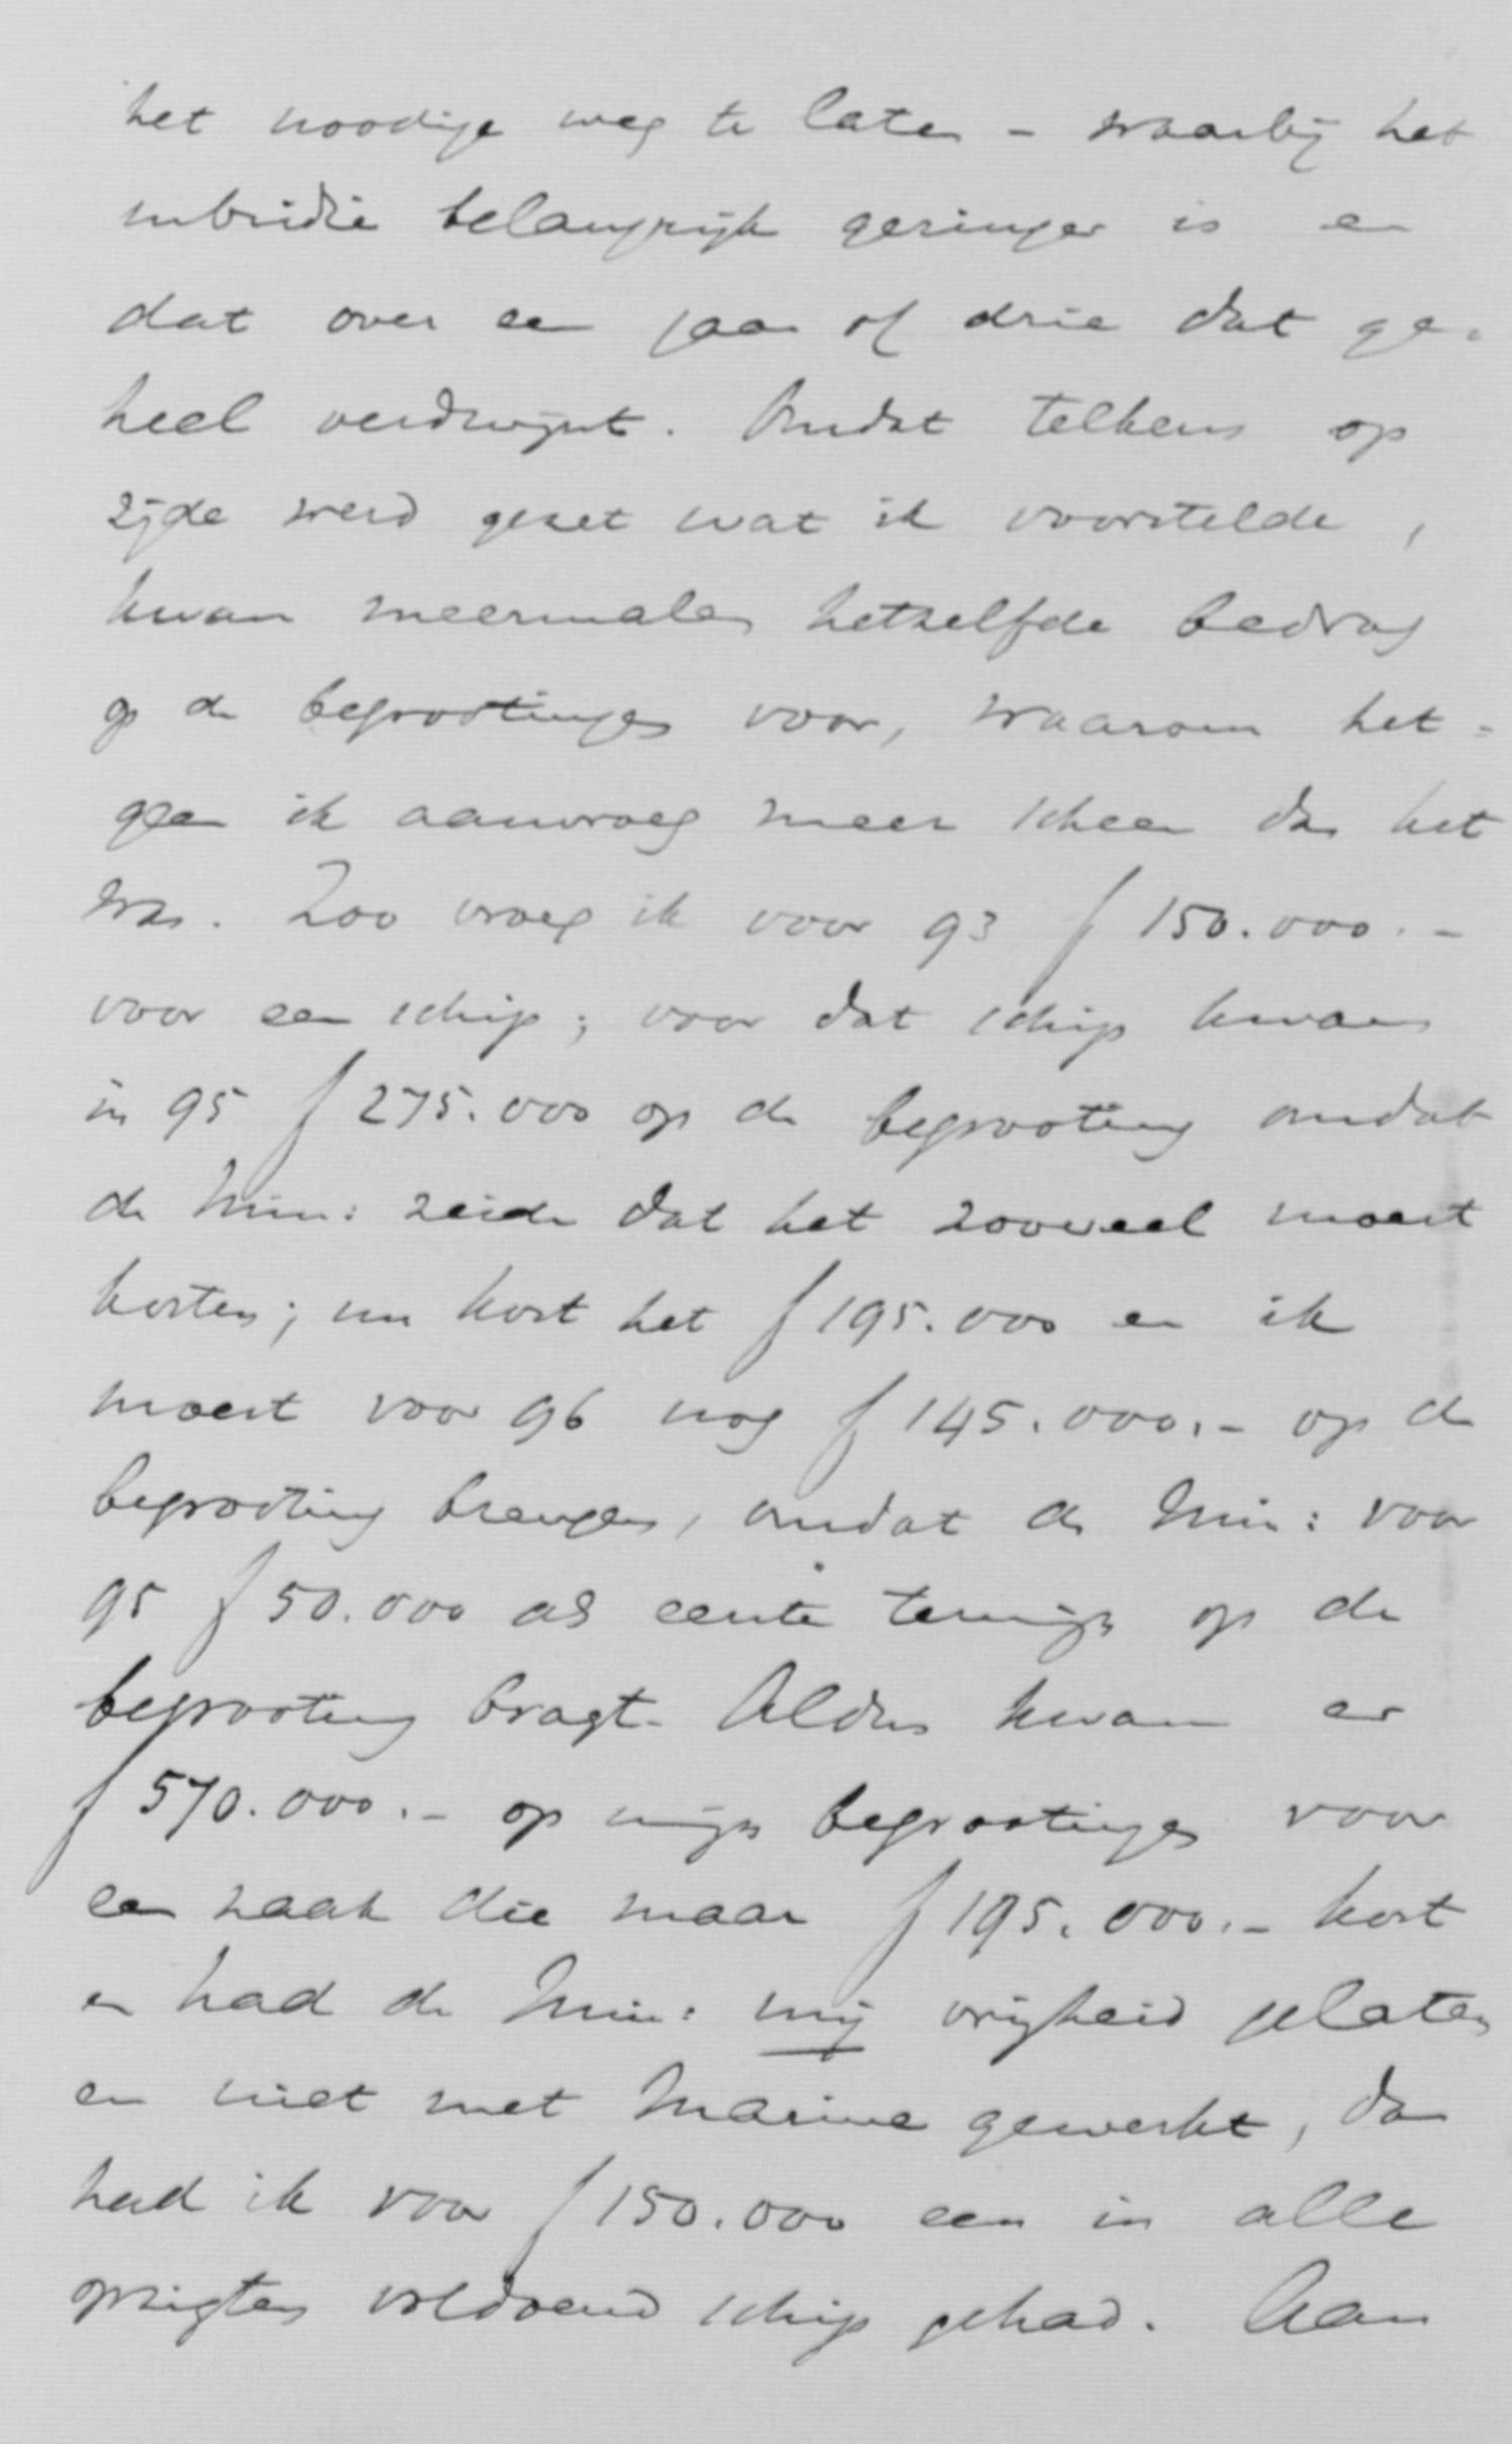 het noodige weg te laten - waarbij het
subsidie belangrijk geringer is en
dat over een jaar of drie dat ge-
heel verdwijnt. Omdat telkens op
zijde werd gezet wat ik voorstelde,
kwam meermalen hetzelfde bedrag
op de begrootingen voor, waarom het-
geen ik aanvroeg meer scheen dan het
was. Zoo vroeg ik voor 93 f 150.000.-
voor een schip; voor dat schip kwam
in 95 f 275.000 op de begrooting omdat
de Min: zeide dat het zooveel moest
kosten; nu kost het f 195.000 en ik
moest voor 96 nog f 145.000.- op de
begrooting brengen, omdat de Min: voor
95 f 50.000 als eerste termijn op de
begrooting bragt. Aldus kwam er
f 570.000.- op mijn begrootingen voor
een zaak die maar f 195.000.- kost
en had de Min: mij vrijheid gelaten
en niet met Marine gewerkt, dan
had ik voor f 150.000 een in alle
opzigten voldoend schip gehad. Aan